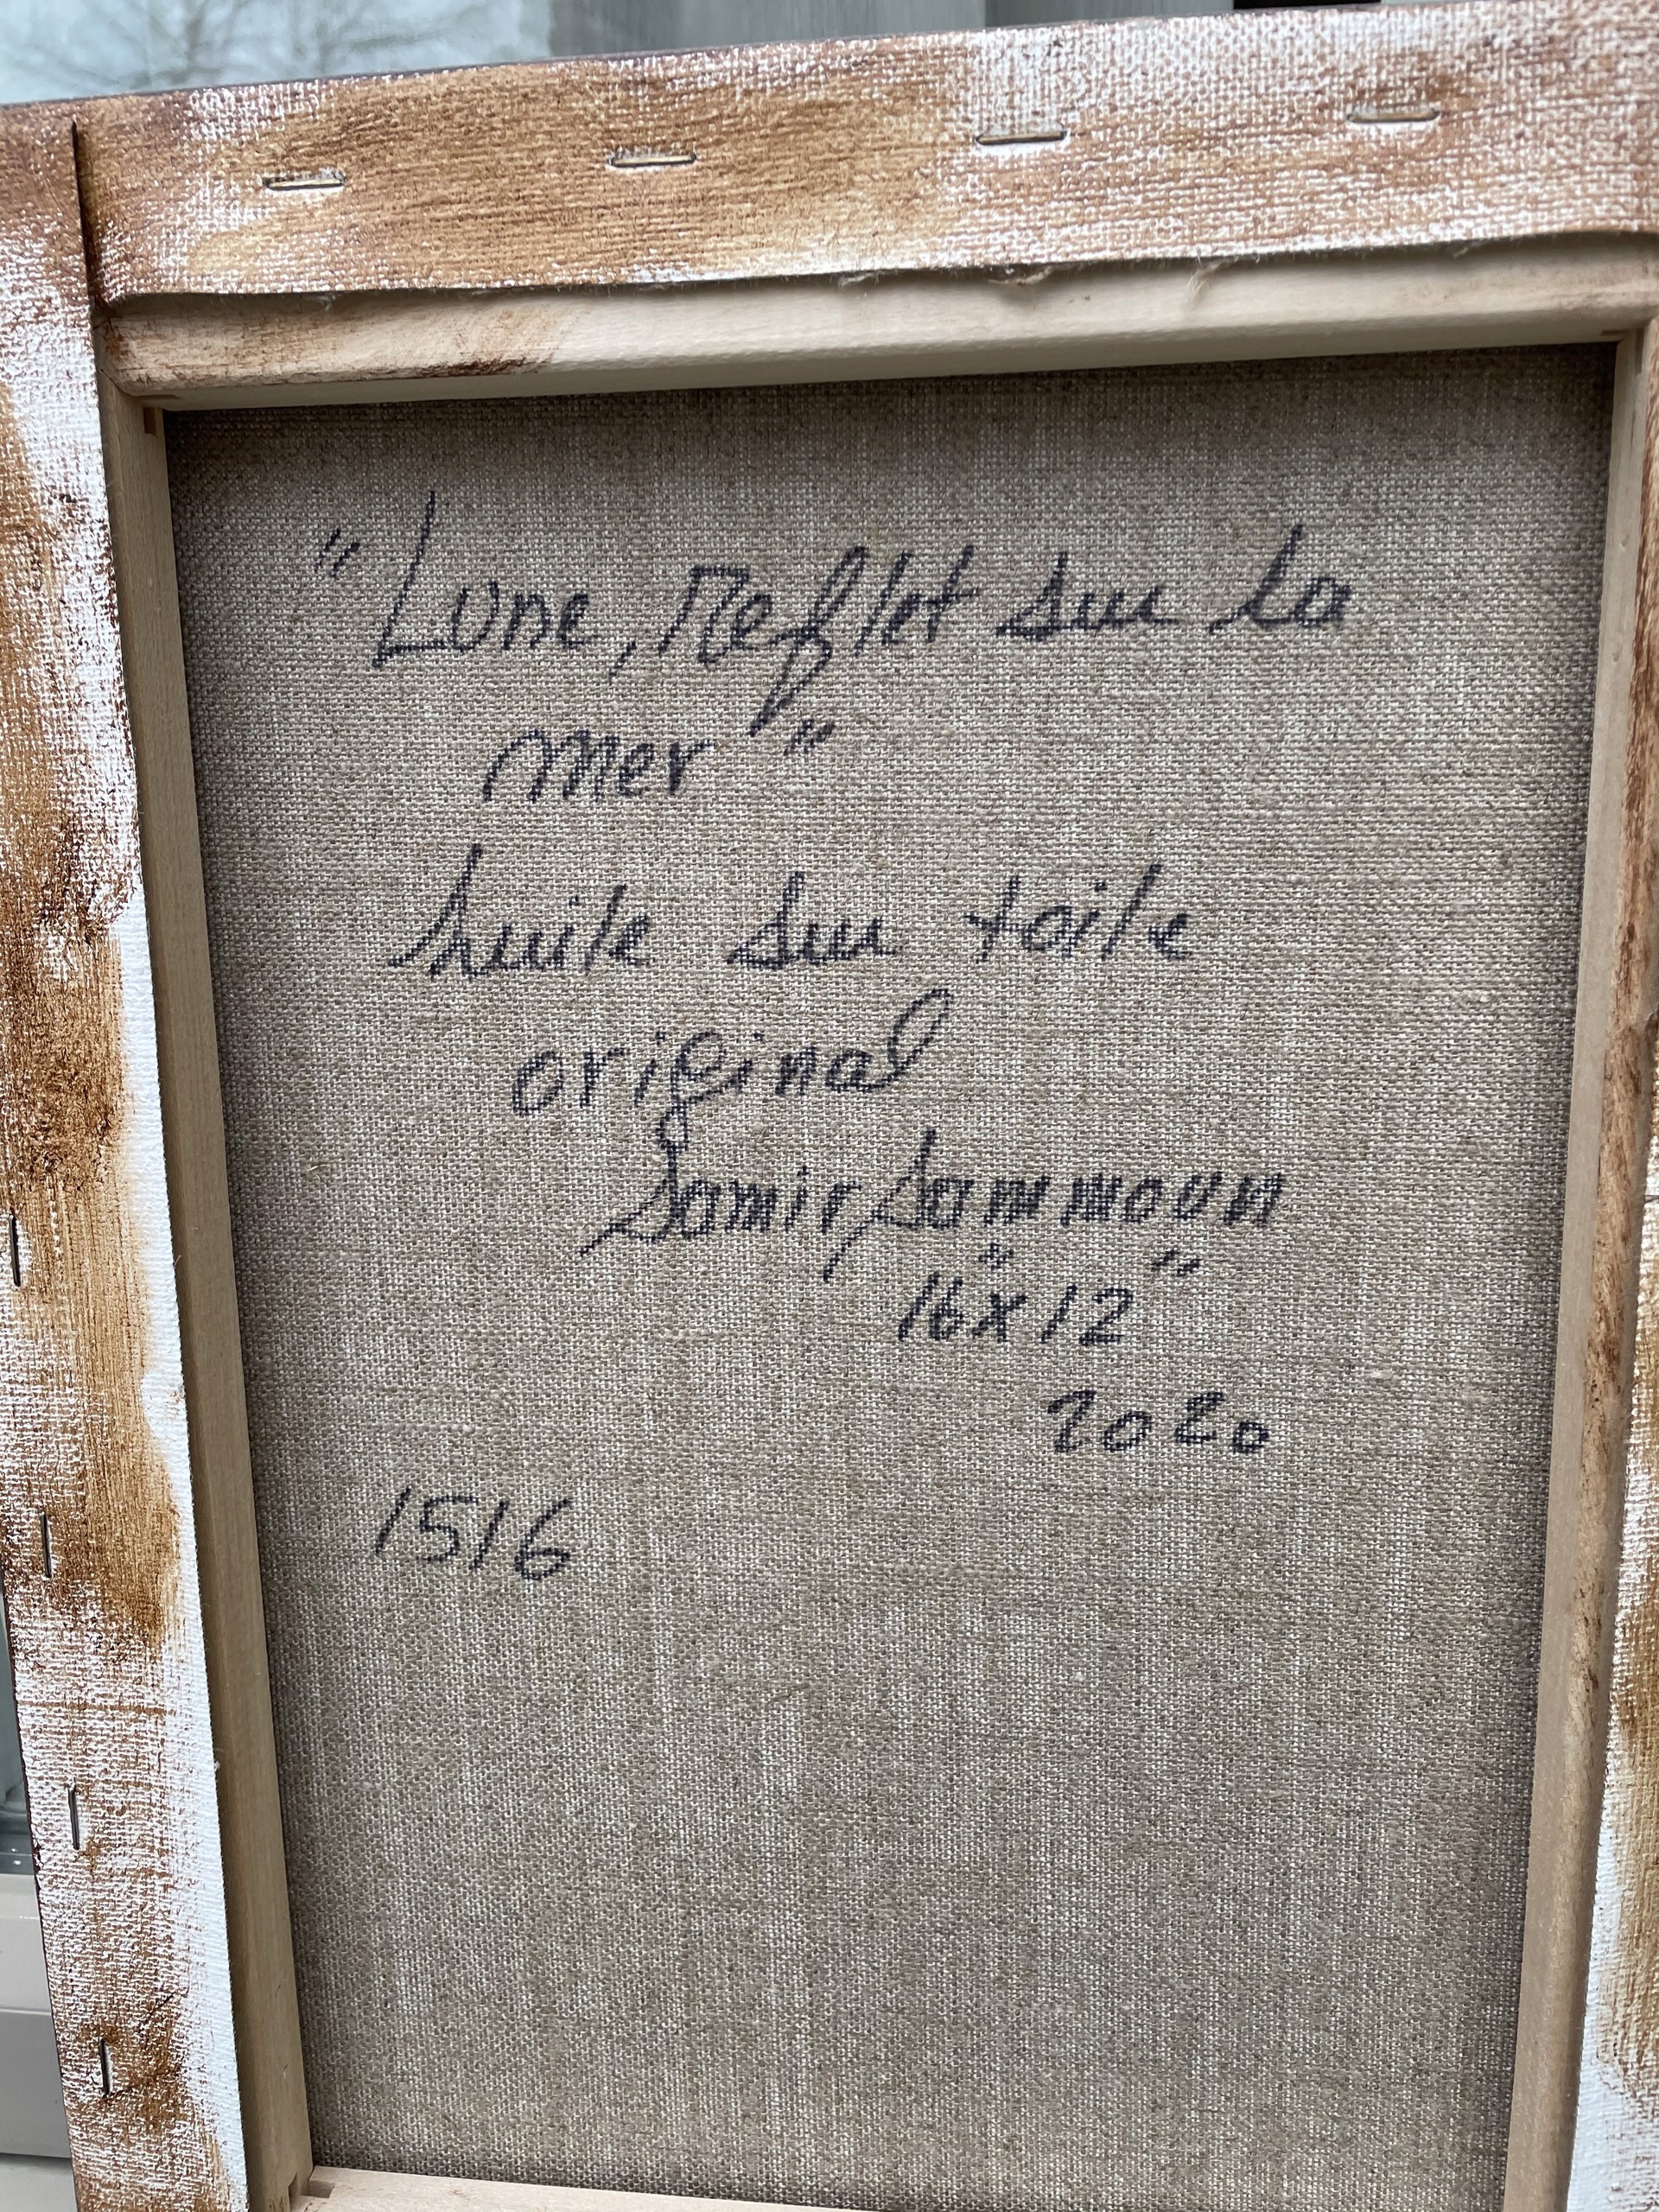 "Lune, Reflet sur la
mer"
huile sur toile
original
Samir Sammoun
16"x12"
2020
1516